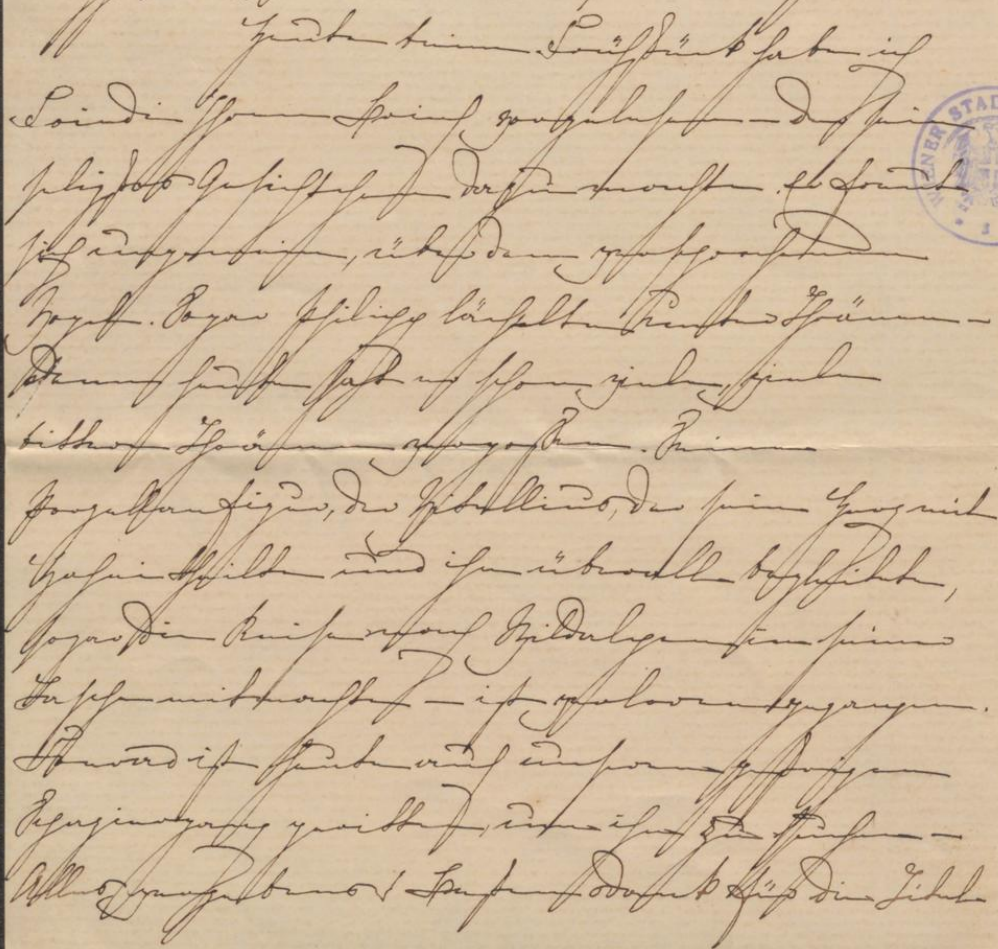 Heute beim Frühstück habe ich
Loindi Ihren Brief vorgelesen – das sein
seligstes Gesichtchen dazu machte. Er freut
sich ungemein, über den versprochenen
Vogel. Sogar Philipp lächelte unter Thränen –
Denn heute hat er schon viele, viele
bittere Thränen vergossen. Seine
Porzellanfigur, der Vitellius, der sein Haus mit
theilte und ihn überall begleitete,
sogar die Reise nach Wildalpen in seiner
Tasche mitmachte – ist verloren gegangen.
Edward ist heute auch unseren gestrigen
Spaziergang geritten, um ihn zu suchen –
Alles vergebens! Tausend Dank für die
WIENER STAD